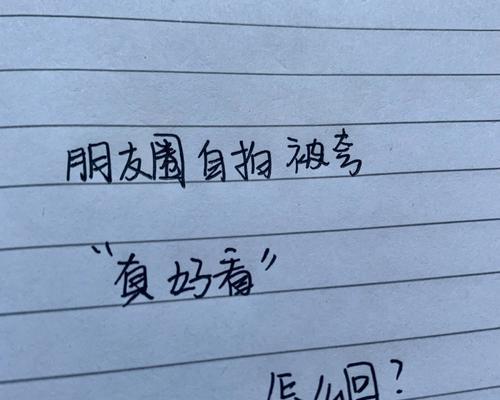 朋友圈自拍被夸
“真好看”
怎么回？